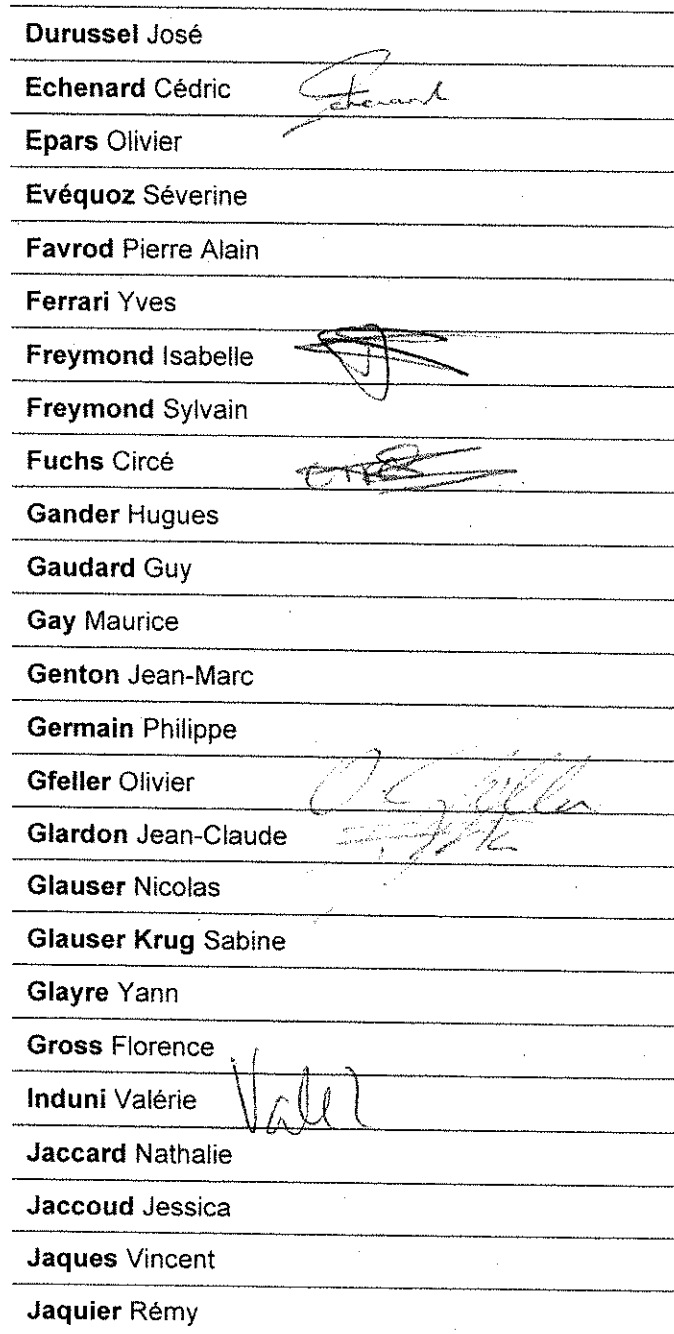 Durussel José
Echenard Cédric
Epars Olivier
Evéquoz Séverine
Favrod Pierre Alain
Ferrari Yves
Freymond Isabelle
Freymond Sylvain
Fuchs Circé
Gander Hugues
Gaudard Guy
Gay Maurice
Genton Jean-Marc
Germain Philippe
Gfeller Olivier O. Gfeller
Glardon Jean-Claude
Glauser Nicolas
Glauser Krug Sabine
Glayre Yann
Gross Florence
Induni Valérie
Jaccard Nathalie
Jaccoud Jessica
Jaques Vincent
Jaquier Rémy